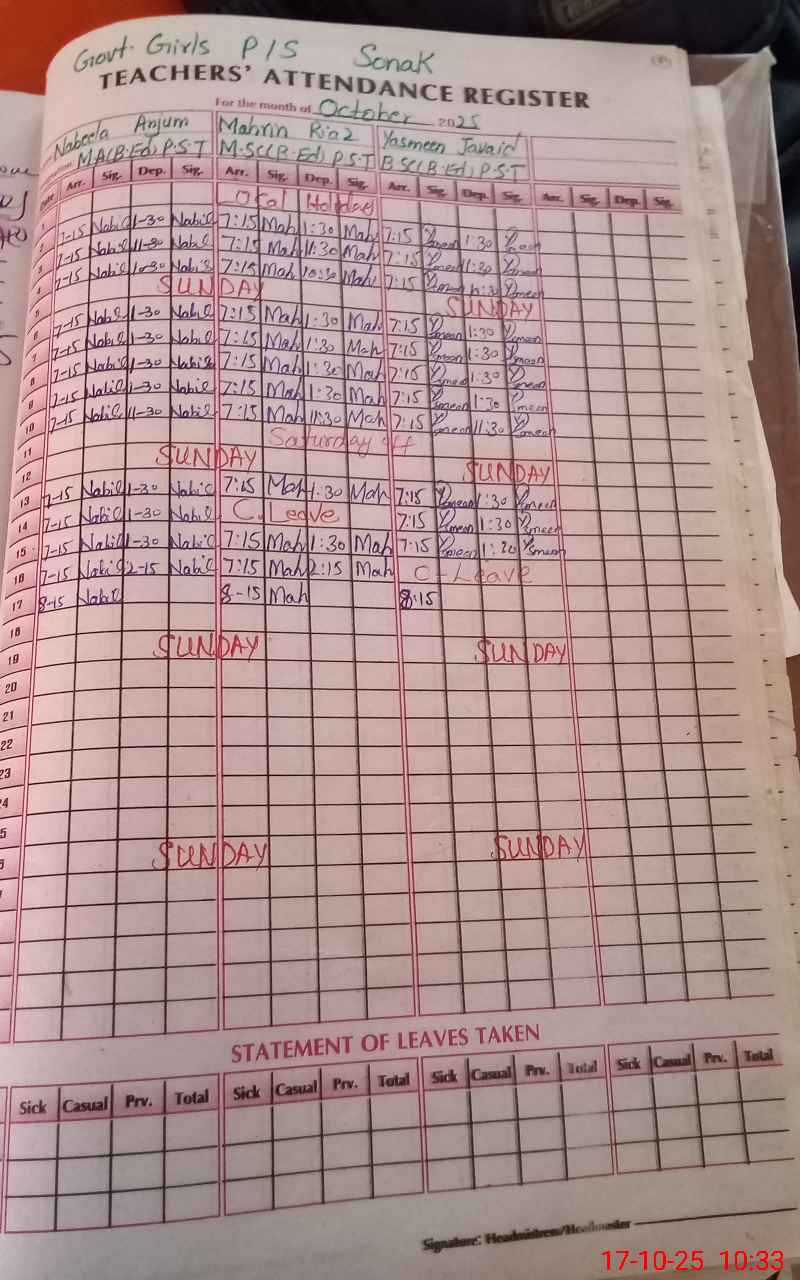 Govt. Girls P/S Sonak
TEACHERS' ATTENDANCE REGISTER
For the month of October 2025
Nabeela Anjum Mahrin Riaz Yasmeen Javaid
M.A(B.Ed) P.S.T M.SC(B.Ed) P.S.T B.SC(B.Ed) P.S.T
Date Arr. Sig. Dep. Sig. Arr. Sig. Dep. Sig. Arr. Sig. Dep. Sig. Arr. Sig. Dep. Sig.
1 Holiday
2 7-15 Nabil 1-30 Nabil 7:15 Mah 1:30 Mah 7:15 Ysmeen 1:30 Ysmeen
3 7-15 Nabil 11-30 Nabil 7:15 Mah 11:30 Mah 7:15 Ysmeen 11:30 Ysmeen
4 7-15 Nabil 10-30 Nabil 7:15 Mah 10:30 Mah 7:15 Ysmeen Ysmeen
5 SUNDAY SUNDAY
6 7-15 Nabil 1-30 Nabil 7:15 Mah 1:30 Mah 7:15 Ysmeen 1:30 Ysmeen
7 7-15 Nabil 1-30 Nabil 7:15 Mah 1:30 Mah 7:15 Ysmeen 1:30 Ysmeen
8 7-15 Nabil 1-30 Nabil 7:15 Mah 1:30 Mah 7:15 Ysmeen 1:30 Ysmeen
9 7-15 Nabil 1-30 Nabil 7:15 Mah 1:30 Mah 7:15 Ysmeen 1:30 Ysmeen
10 7-15 Nabil 11-30 Nabil 7:15 Mah 11:30 Mah 7:15 Ysmeen 11:30 Ysmeen
11 Saturday off
12 SUNDAY SUNDAY
13 7-15 Nabil 1-30 Nabil 7:15 Mah 1:30 Mah 7:15 Ysmeen 1:30 Ysmeen
14 7-15 Nabil 1-30 Nabil C.Leave 7:15 Ysmeen 1:30 Ysmeen
15 7-15 Nabil 1-30 Nabil 7:15 Mah 1:30 Mah 7:15 Ysmeen 1:30 Ysmeen
16 7-15 Nabil 2-15 Nabil 7:15 Mah 2:15 Mah C-Leave
17 8-15 Nabil 8-15 Mah 8:15
18
19 SUNDAY SUNDAY
20
21
22
23
4
5
6 SUNDAY SUNDAY
STATEMENT OF LEAVES TAKEN
Sick Casual Prv. Total Sick Casual Prv. Total Sick Casual Prv. Total Sick Casual Prv. Total
Signature: Headmistress/Headmaster
17-10-25 10:33